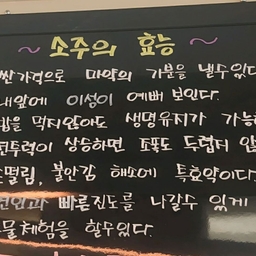 ~ 소주의 효능 ~
싼가격으로 마약의 기분을 낼수있다
내앞에 이성이 예뻐 보인다.
밥을 먹지않아도 생명유지가 가능
전투력이 상승하면 조폭도 두렵지 않
떨림, 불안감 해소에 특효약이다.
빠른진도를 나갈수 있게
동물체험을 할수있다.